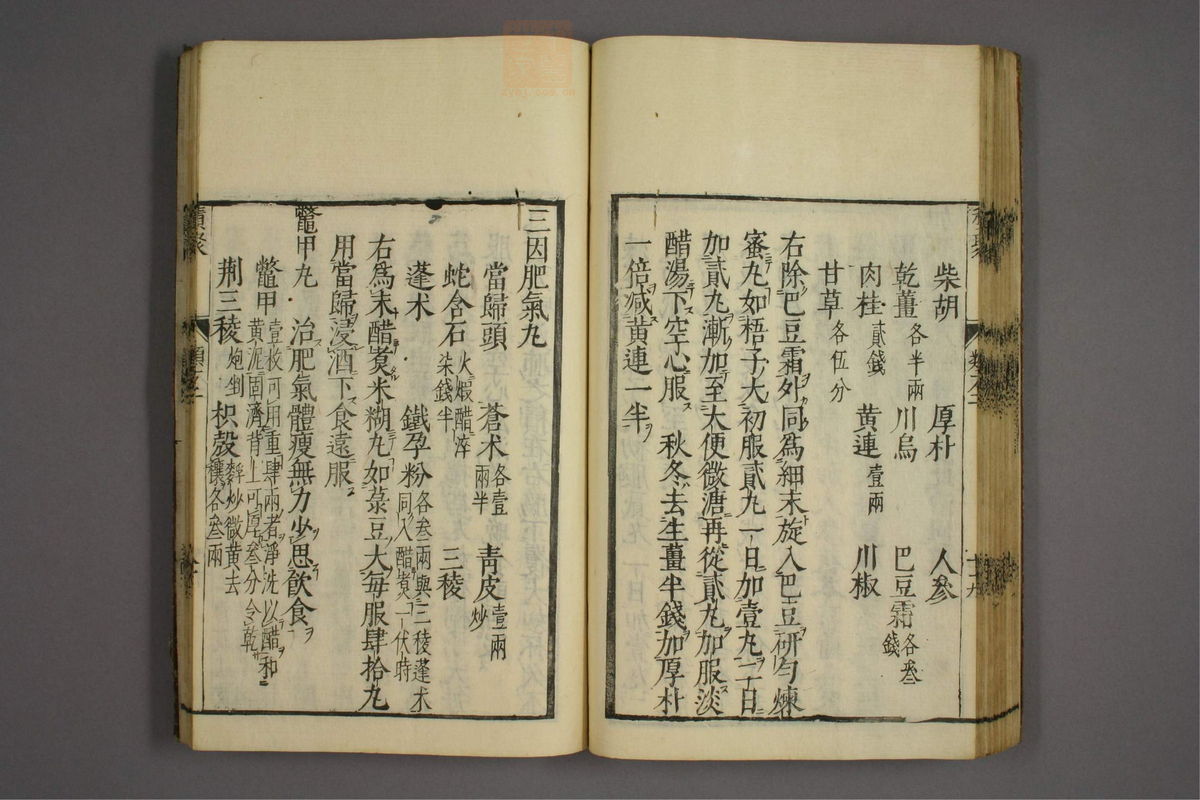 柴胡 厚朴 人參
乾薑各半兩 川烏 巴豆霜各叄錢
肉桂貳錢 黄連壹兩 川椒
甘草各伍分
右除巴豆霜外同為細末旋入巴豆研勻煉
蜜丸如梧子大初服貳丸一日加壹丸二日
加貳丸漸加至大便微溏再從貳丸加服淡
醋湯下空心服 秋冬去生薑半錢加厚朴
一倍减黄連一半
三因肥氣丸
當歸頭 蒼术各壹兩半 青皮壹兩炒
蛇含石火煆醋淬柒錢半 三稜
蓬术 鐵孕粉各叄兩與三稜蓬术同入醋煮一伏時
右為末醋煮米糊丸如菉豆大每服肆拾丸
用當歸浸酒下食遠服
鼈甲丸 治肥氣體瘦無力少思飲食
鼈甲壹枚可用重肆兩者淨洗以醋和黄泥固濟背上可厚叄分令乾
荆三稜炮剉 枳殻麩炒微黄去穰各叄兩
積聚